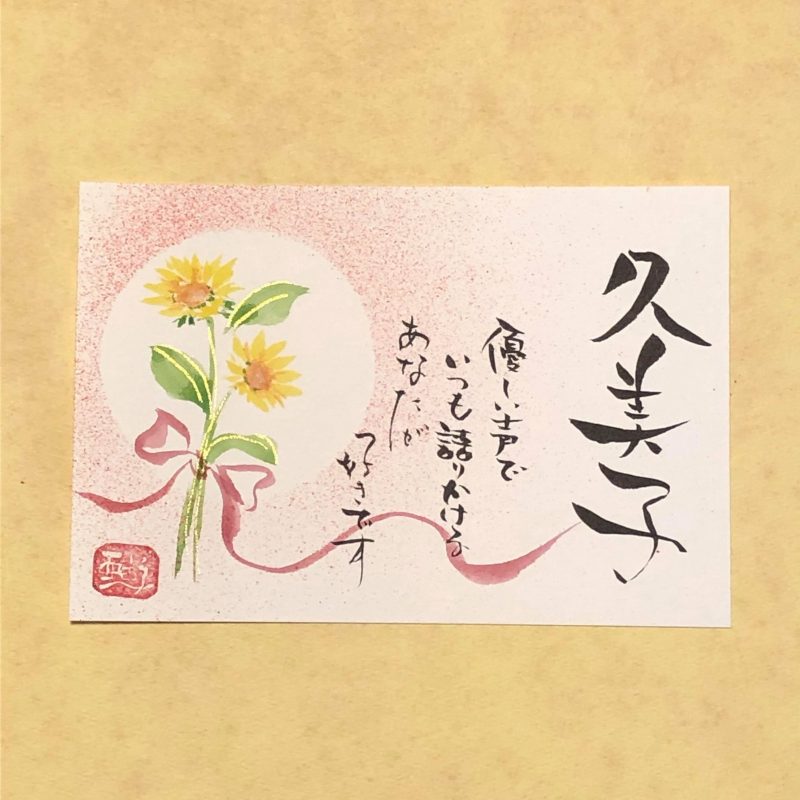 久美子
優しい声で
いつも語りかける
あなたが
好きです